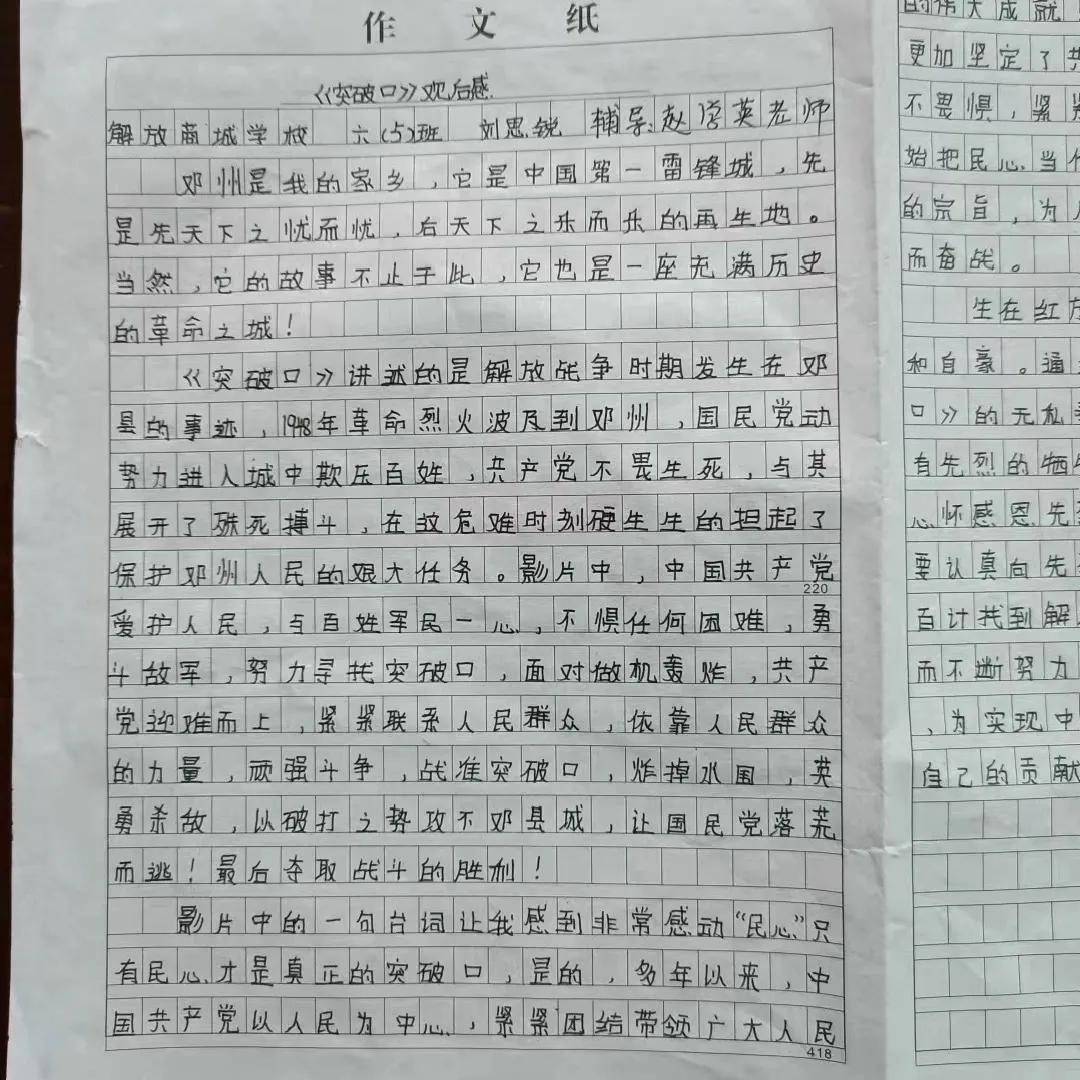 作文纸
《突破口》观后感
解放商城学校 六(5)班 刘思锐 辅导:赵学英老师
邓州是我的家乡,它是中国第一雷锋城,先
是先天下之忧而忧,后天下之乐而乐的再生地。
当然,它的故事不止于此,它也是一座充满历史
的革命之城!
《突破口》讲述的是解放战争时期发生在邓
县的事迹,1948年革命烈火波及到邓州,国民党动
势力进入城中欺压百姓,共产党不畏生死,与其
展开了殊死搏斗,在这危难时刻硬生生的担起了
保护邓州人民的艰大任务。影片中,中国共产党
220
爱护人民,与百姓军民一心,不惧任何困难,勇
斗敌军,努力寻找突破口,面对做机轰炸,共产
党迎难而上,紧紧联系人民群众,依靠人民群众
的力量,顽强斗争,战准突破口,炸掉水围,英
勇杀敌,以破打之势攻不邓县城,让国民党落荒
而逃!最后夺取战斗的胜利!
影片中的一句台词让我感到非常感动“民心”只
有民心才是真正的突破口,是的,多年以来,中
国共产党以人民为中心,紧紧团结带领广大人民
418
的伟大成就
更加坚定了共
不畏惧,紧
始把民心当作
的宗旨,为人
而奋战。
生在红
和自豪。通
口》的无私
有先烈的牺牲
心怀感恩先
要认真向先
百计找到解
而不断努力
,为实现中
自己的贡献